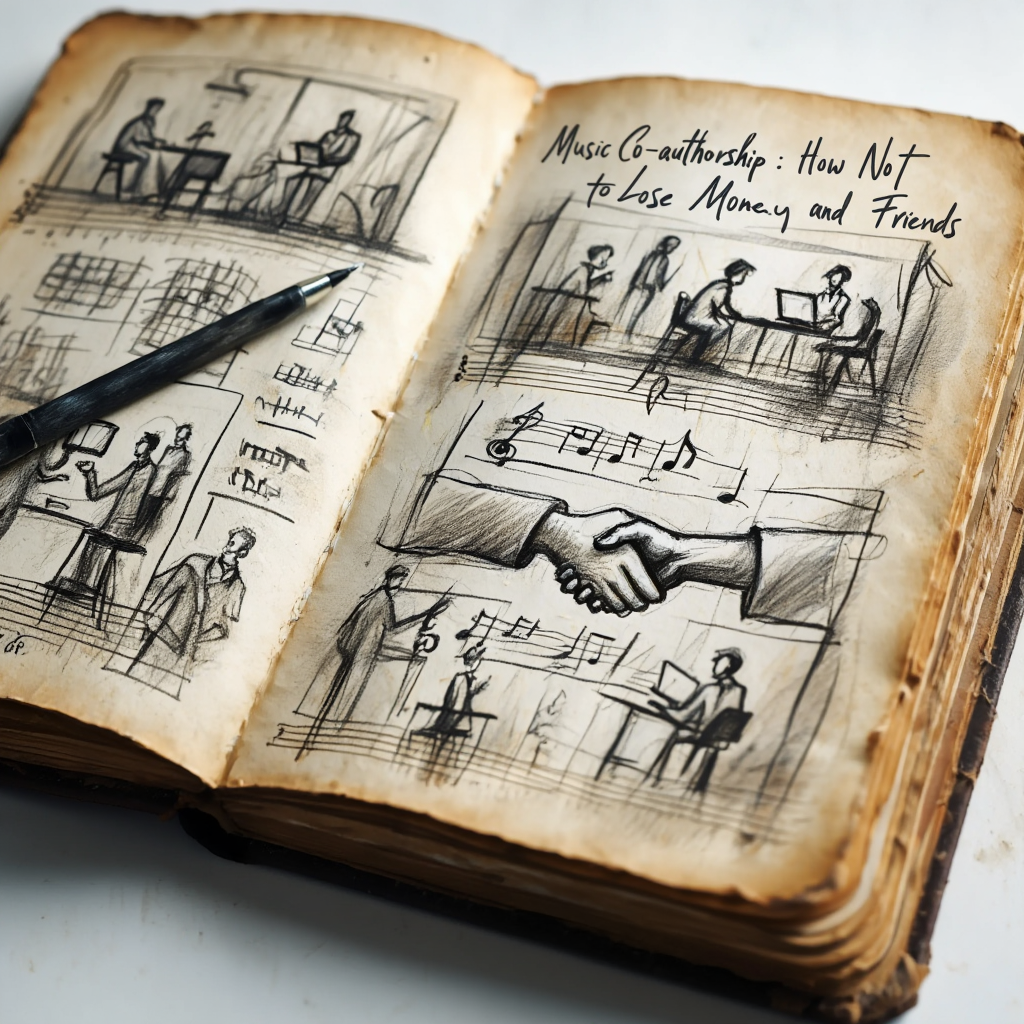 Music Co-authorship : How Not
to Lose Money and Friends